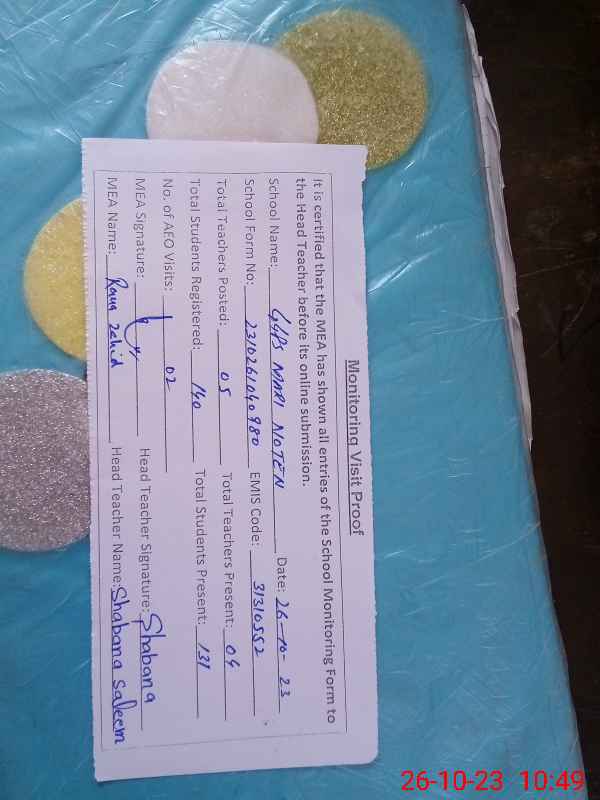 Monitoring Visit Proof
It is certified that the MEA has shown all entries of the School Monitoring Form to
the Head Teacher before its online submission.
School Name: GGPS MARI NOTEN Date: 26-10-23
School Form No: 2310261040980 EMIS Code: 31310552
Total Teachers Posted: 05 Total Teachers Present: 04
Total Students Registered: 140 Total Students Present: 131
No. of AEO Visits: 02
MEA Signature: Head Teacher Signature: Shabana
MEA Name: Rana Zahid Head Teacher Name: Shabana Saleem
26-10-23 10:49